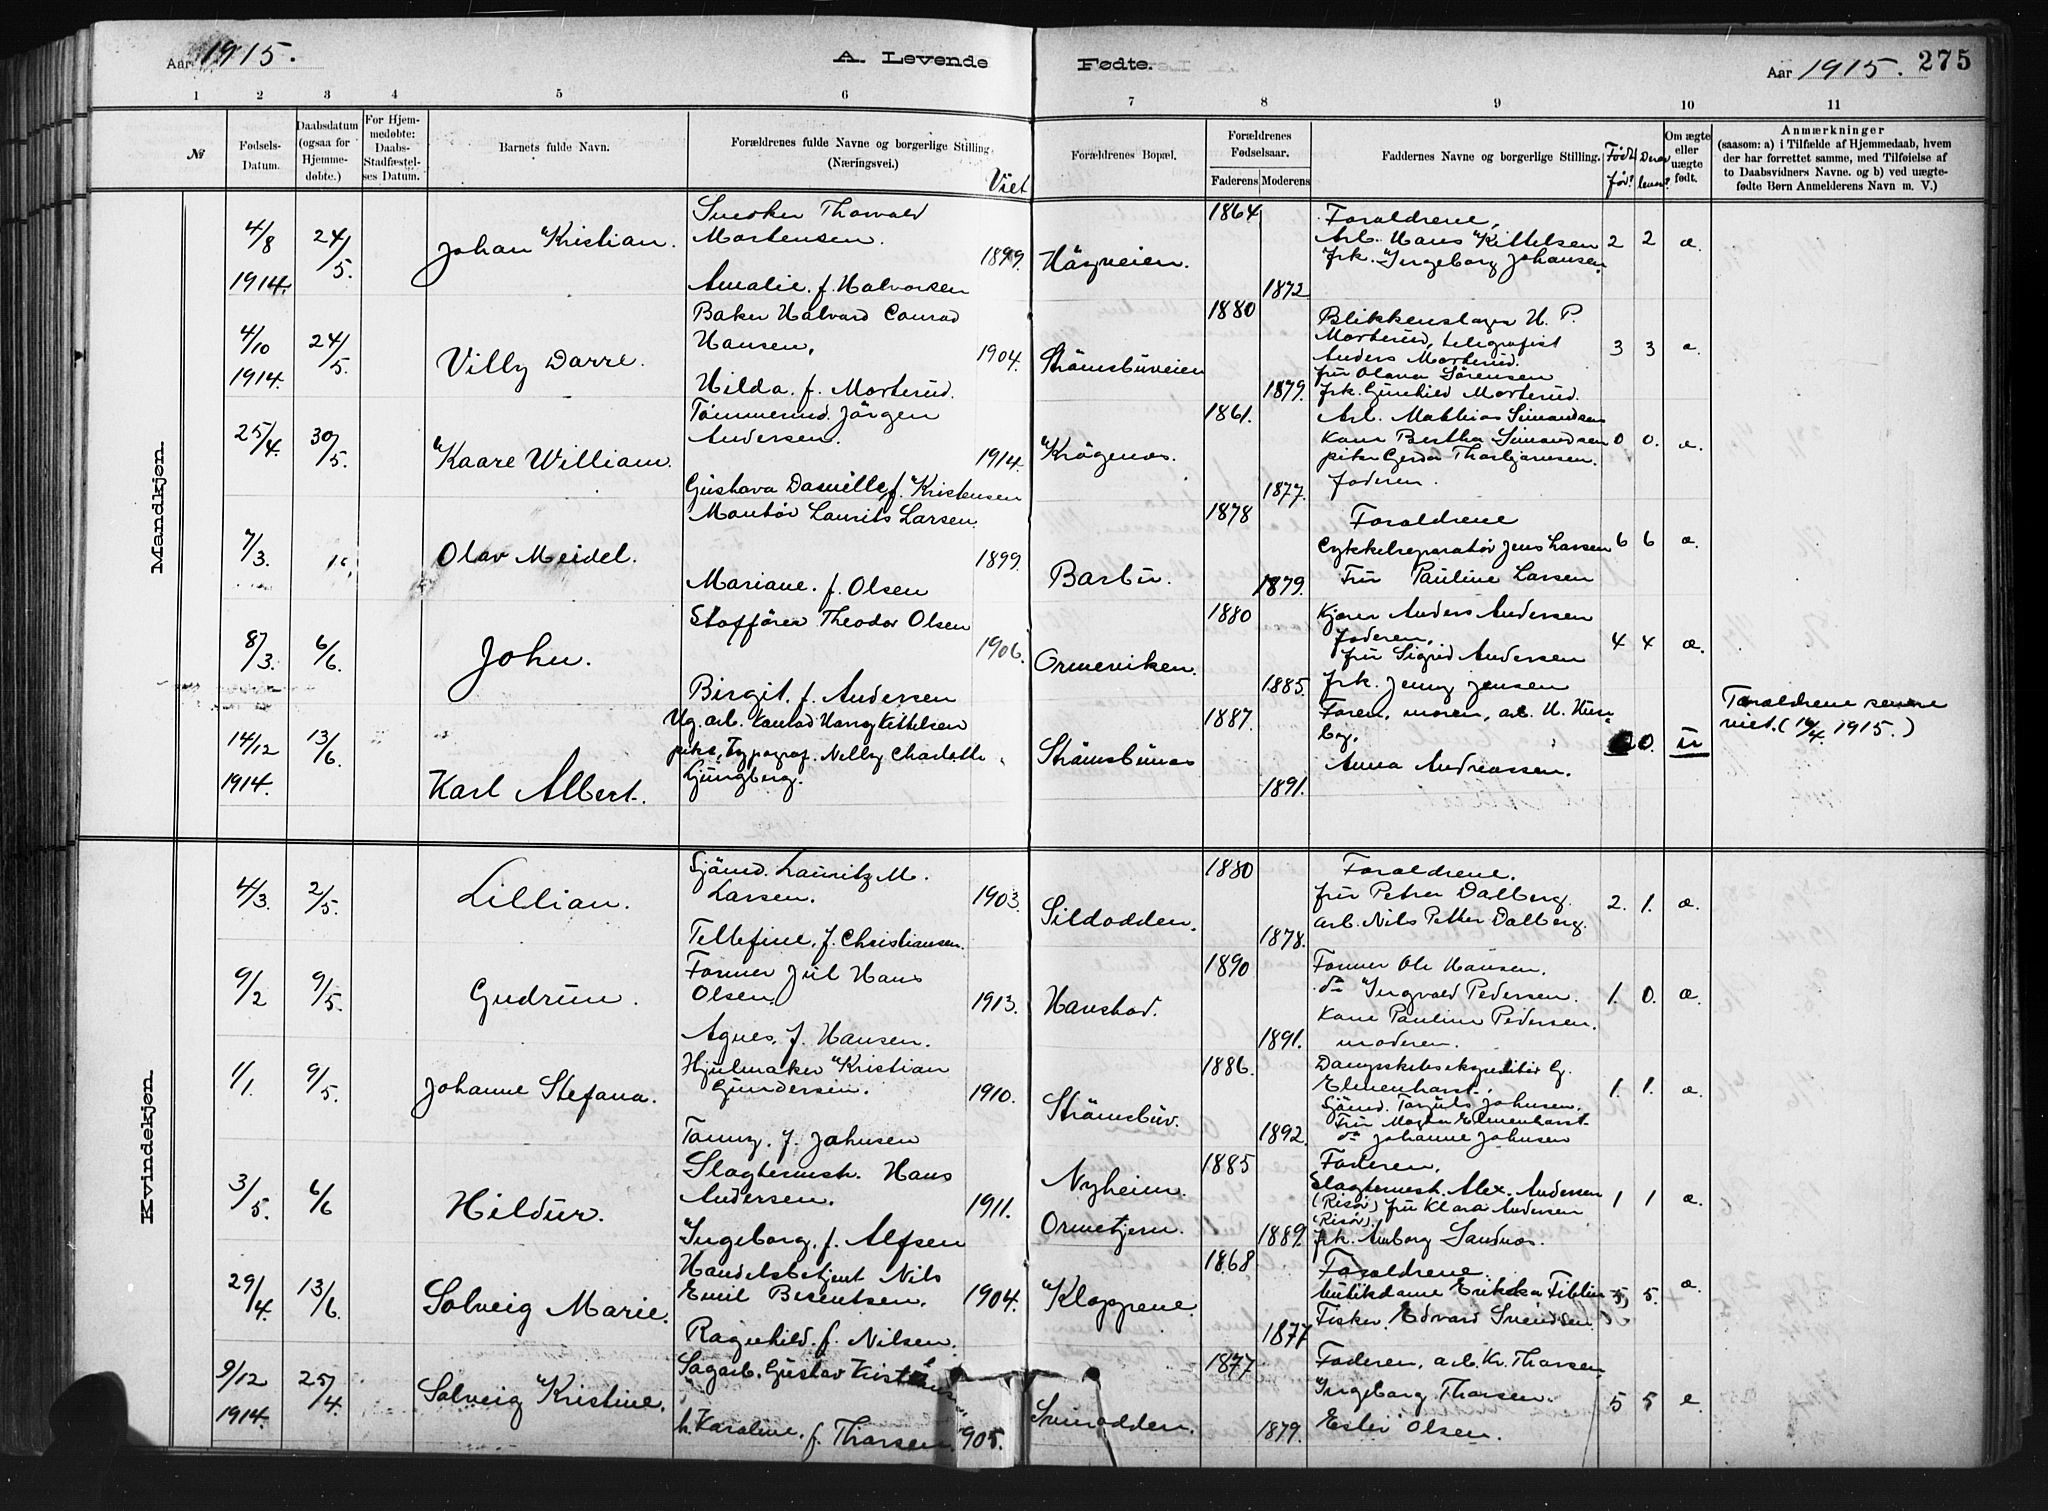 Aar 1915.
A. Levende Fødte.
Aar 1915.
275
1 2 3 4 5 6 7 8 9 10 11
№
Fødsels-Datum.
Daabsdatum (ogsaa for Hjemme-døbte.)
For Hjem-medøbte: Daabs-Stadfæstel-ses Datum.
Barnets fulde Navn.
Forældrenes fulde Navne og borgerlige Stilling
(Næringsvei.)
Viet
Forældrenes Bopæl.
Forældrenes Fødselsaar.
Faderens Moderens
Faddernes Navne og borgerlige Stilling.
Født før?
Derav lever?
Om ægte eller uægte født.
Anmærkninger
(saasom: a) i Tilfælde af Hjemmedaab, hvem
der har forrettet samme, med Tilføielse af
to Daabsvidners Navne. og b) ved uægte-
fødte Børn Anmelderens Navn m. V.)
Mandkjøn.
4/8 1914. 24/5. Johan Kristian.
Snedker Thorvald
Mortensen.
Amalie. f. Halvorsen
1899. 1864 1872
Forældrene,
Arb. Hans Kittelsen
frk. Ingeborg Johansen.
2 2 æ.
4/10 1914. 24/5. Villy Darre.
Baker Halvard Conrad
Hansen,
Hilda. f. Morterud.
1904. Strømsbuveien 1880 1879.
Blikkenslager H. P.
Morterud, telegrafist
Anders Morterud.
fru Olava Sørensen
frk. Gunhild Morterud.
3 3 æ.
25/4. 30/5. Kaare William.
Tømmermd. Jørgen
Andersen.
Gustava Danielle, f. Kristensen
1914. Krøgenæs. 1861. 1877.
Arb. Mathias Simonsen
Kone Bertha Simonsen
pike Gerda Thorbjørnsen.
faderen.
0 0. æ.
7/3. Olav Meidel.
Montør Laurits Larsen.
Mariane. f. Olsen
1899. Barbu. 1878 1879.
Forældrene
Cykkelreparatør Jens Larsen
Fru Pauline Larsen
6 6 æ.
8/3. 6/6. John.
Theodor Olsen
Birgit. f. Andersen
1906. Ormeviken. 1880 1885.
Anders Andersen
faderen.
fru Sigrid Andersen
frk. Jenny Jensen
4 4 æ.
14/12 1914. 13/6. Karl Albert.
Ug. arb. Konrad Harry Kittelsen
pike, Typograf. Nelly Charlotte
Ljungberg.
Strømsbunæs 1887. 1891.
Faren, moren, arb. H.
Anna Andreassen.
0. u
Forældrene senere
viet. ( 1915.)
Kvindekjøn.
4/3. 2/5. Lillian.
Sjømd. Lauritz M.
Larsen.
Tellefine. f. Christiansen.
1903. Sildodden. 1880 1878.
Forældrene.
fru Petra Dalberg.
arb. Nils Petter Dalberg.
2. 1. æ.
9/2 9/5. Gudrun.
Former Jul Hans
Olsen,
Agnes. f. Hansen.
1913. Hanstad. 1890 1891.
Former Ole Hansen.
do Ingvald Pedersen.
Kone Pauline Pedersen.
moderen.
1. 0. æ.
1/1. 9/5. Johanne Stefana.
Hjulmaker Kristian
Gundersen.
Tomny. f. Johnsen
1910. Strømsbu. 1886. 1892.
Dampskibsekspeditør G.
Elmenhorst.
Sjømd. Johnsen.
Fru Magda Elmenhorst
do Johanne Johnsen
1. 1. æ.
3/5. 6/6 Hildur.
Slagtermstr. Hans
Andersen.
Ingeborg. f. Alfsen
1911. Nyheim.
Ormetjern.
1885 1889.
Faderen.
Slagtermest. Alex. Andersen
(Risør) fru Klara Andersen
(Risør).
frk. Amborg Sandnæs.
1 1 æ.
29/4. 13/6. Solveig Marie.
Handelsbetjent Nils
Emil Berentsen.
Ragnhild. f. Nilsen.
1904. Kloppene. 1868 1877
Forældrene.
Fisker. Edvard Svendsen.
5, 5. æ.
9/12 1914. 25/4. Solveig Kristine.
Sagarb. Gustav
h. Karoline. f. Thorsen
1905. Svinodden. 1877 1879.
Faderen, arb. Kr. Thorsen
Ingeborg Thorsen.
Olsen.
5 5 e.